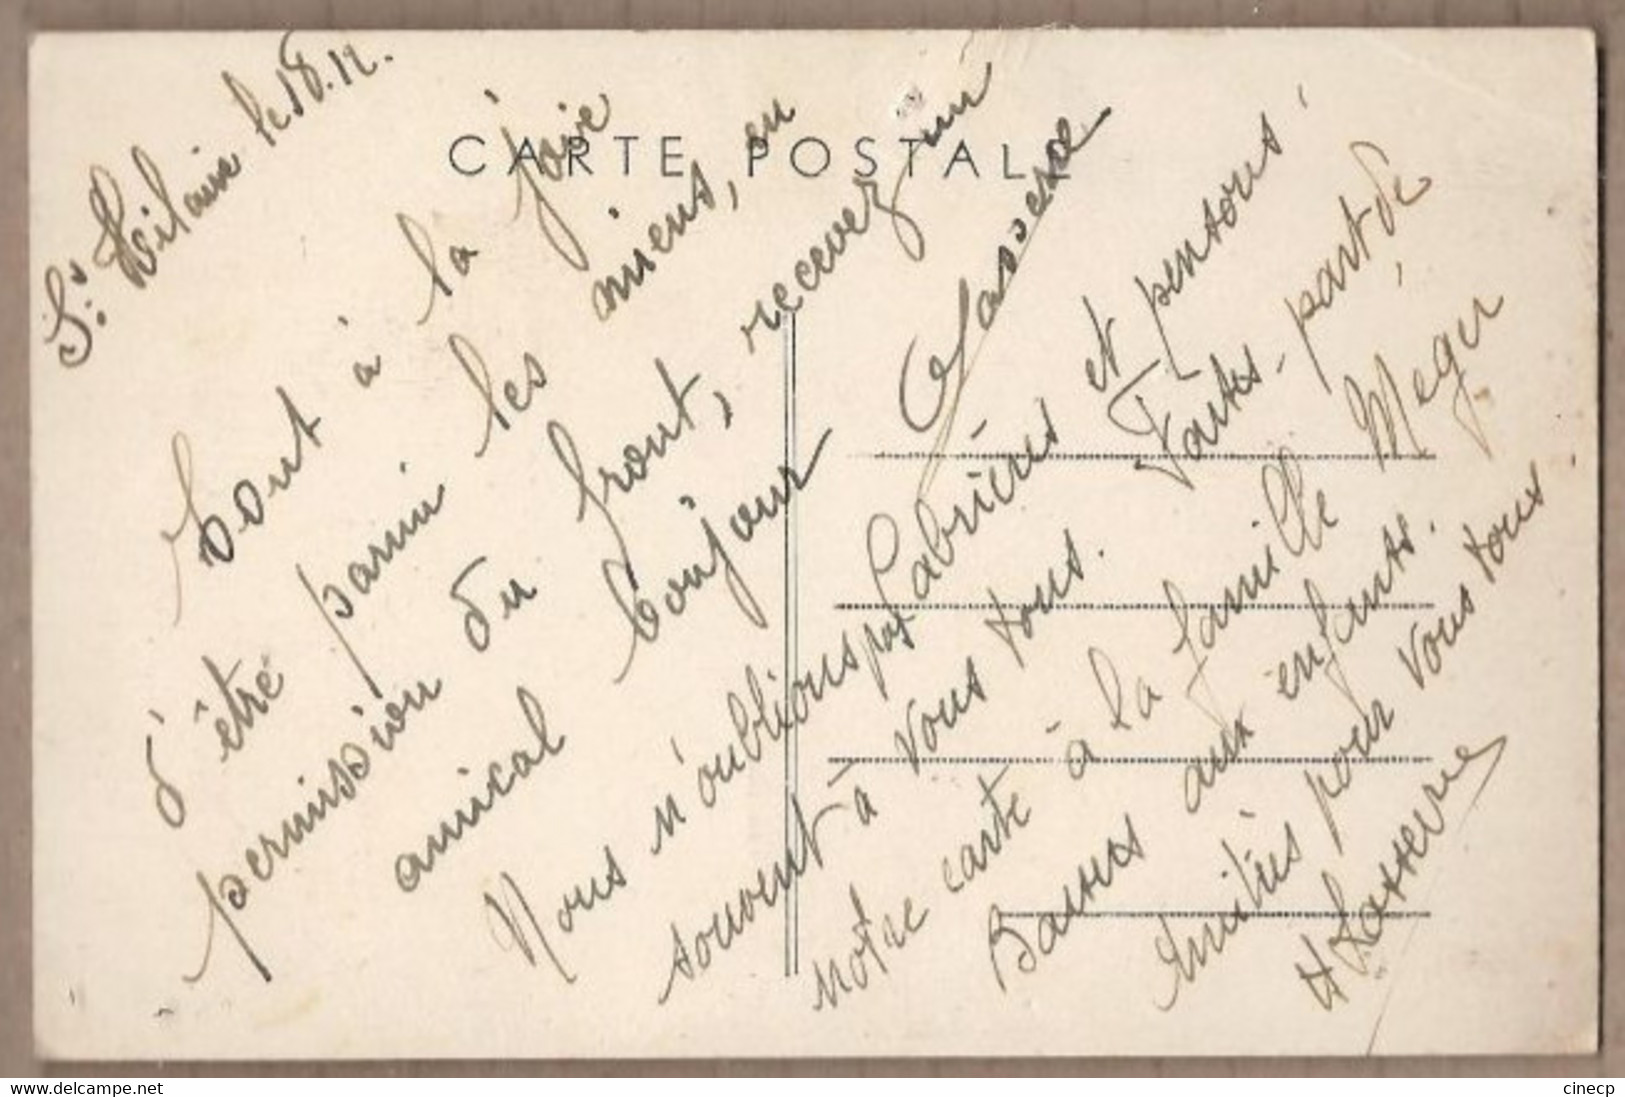 CARTE POSTALE
St. Hilaire le 18.12.
Tout à la joie
d'être parmi les miens, en
permission du front, recevez un
amical bonjour
Nous n'oublions pas Cabrières et pensons
souvent à vous tous. Faites-part de
notre carte à la famille Méger
Baisers aux enfants.
Amitiés pour vous tous
H Lasserre
cinecp